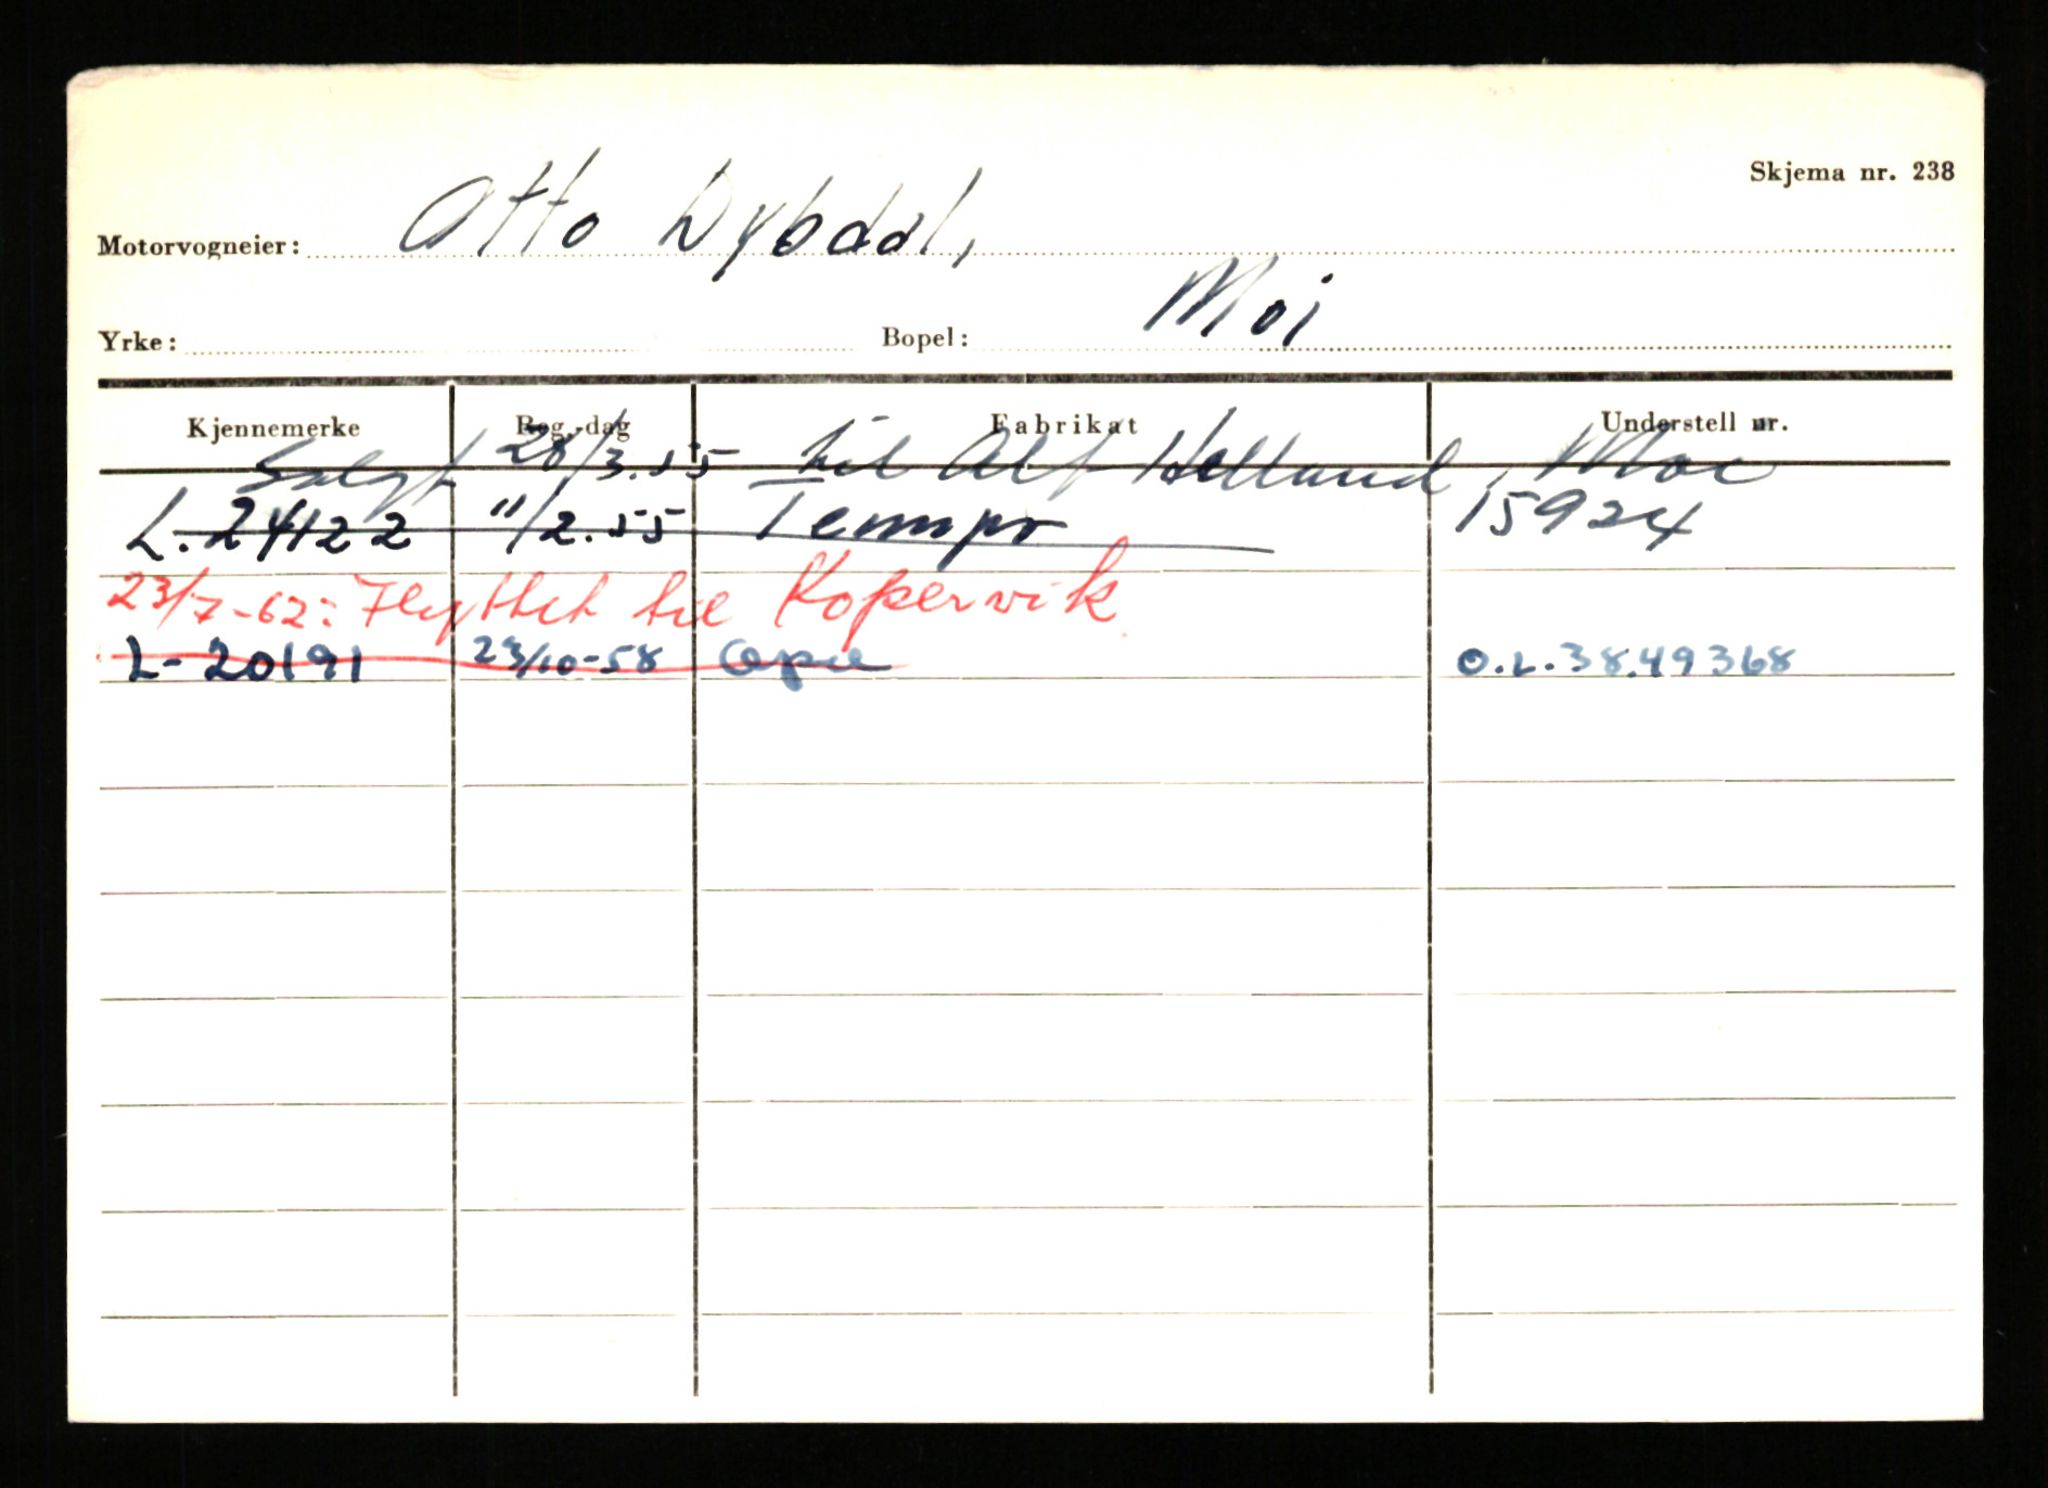 Skjema nr. 238
Motorvogneier: Otto Dybdal,
Yrke: Bopel: Moi
Kjennemerke Reg.-dag Fabrikat Understell nr.
Solgt 28/3.55 til Alf Helland, Moi
L. 24122 11/2.55 Tempo 15924
23/7-62: Flyttet til Kopervik
L- 20191 23/10-58 Opel O.L.38.49368